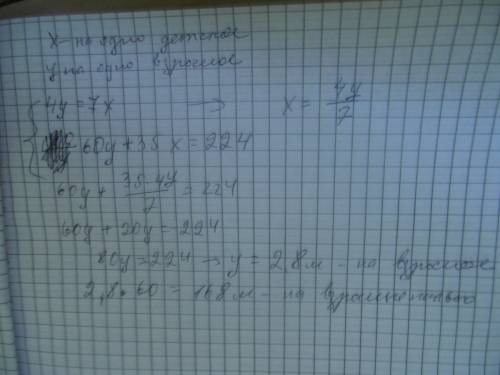 x - на одно детское
y на одно взрослое
4y = 7x → x = 4y/7
60y + 35x = 224
60y + 35·4y/7 = 224
60y + 20y = 224
80y = 224 → y = 2,8м - на взрослое
2,8·60 = 168м - на